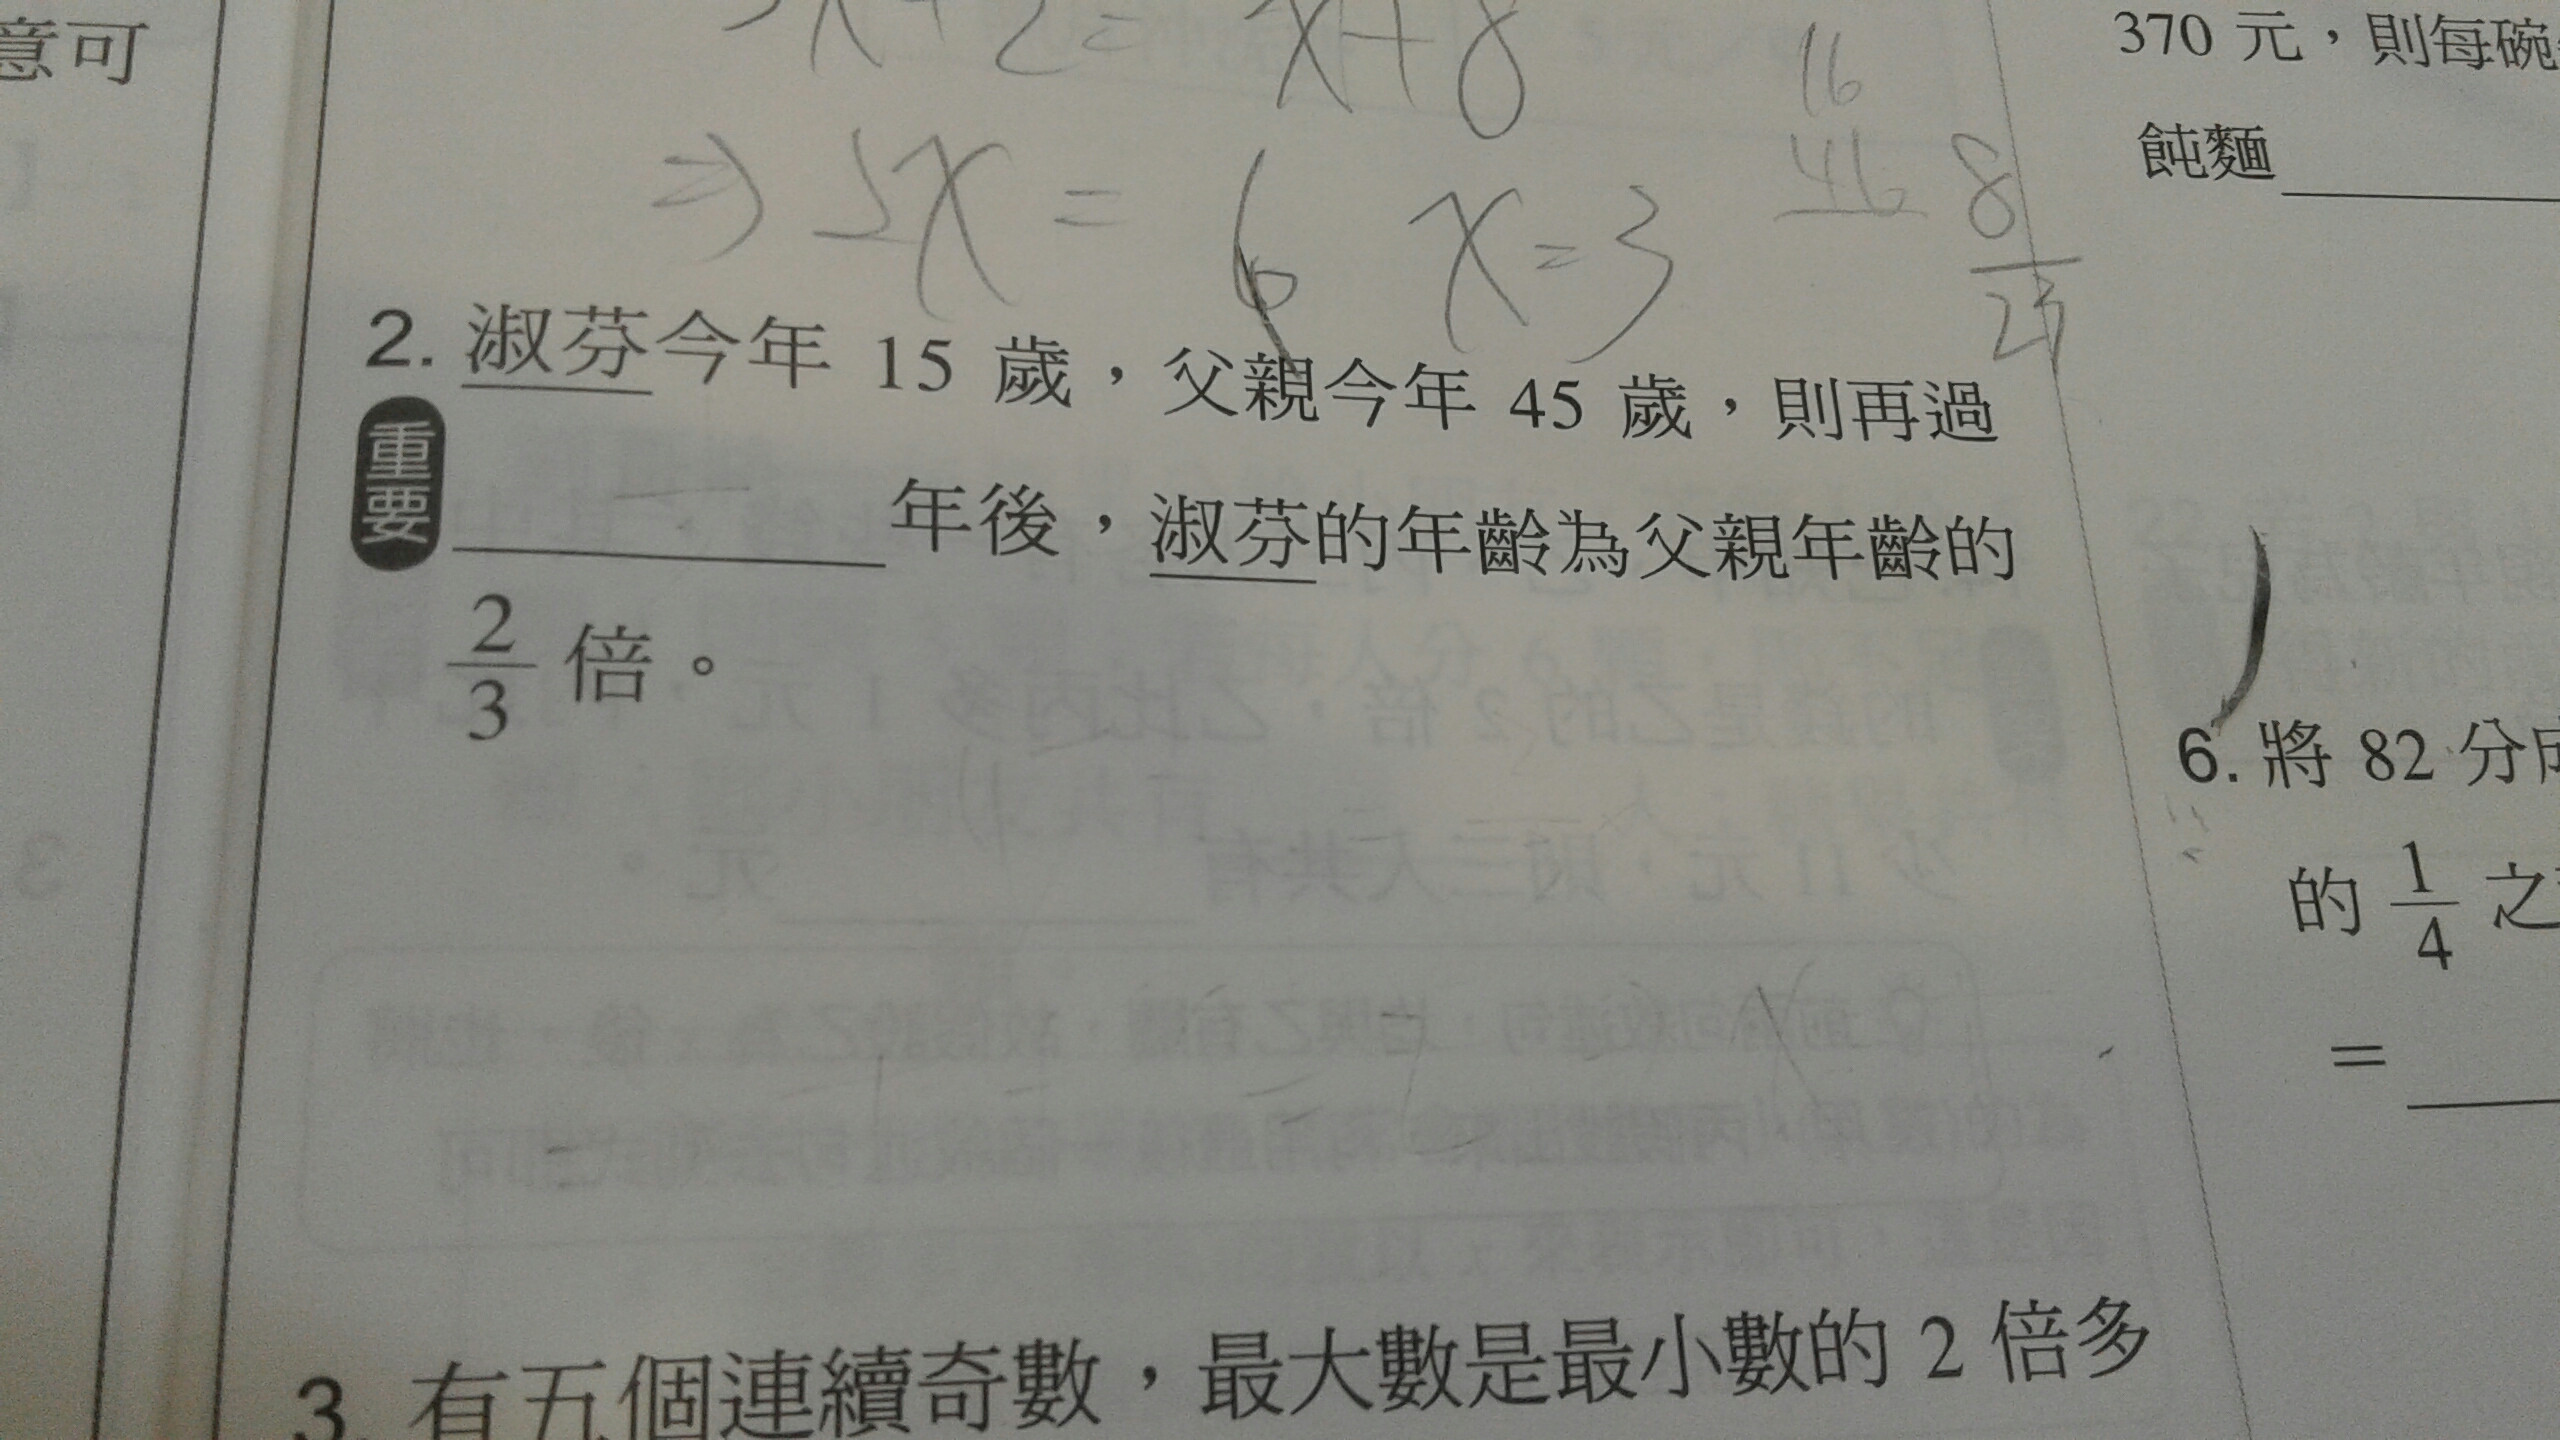 意可
x+2=x+8
⇒2x=6 x=3
16
46
8
23
2. 淑芬今年 15 歲，父親今年 45 歲，則再過
重要
年後，淑芬的年齡為父親年齡的
2/3 倍。
3. 有五個連續奇數，最大數是最小數的 2 倍多
370 元，則每碗
飩麵
6. 將 82 分成
的 1/4 之
=